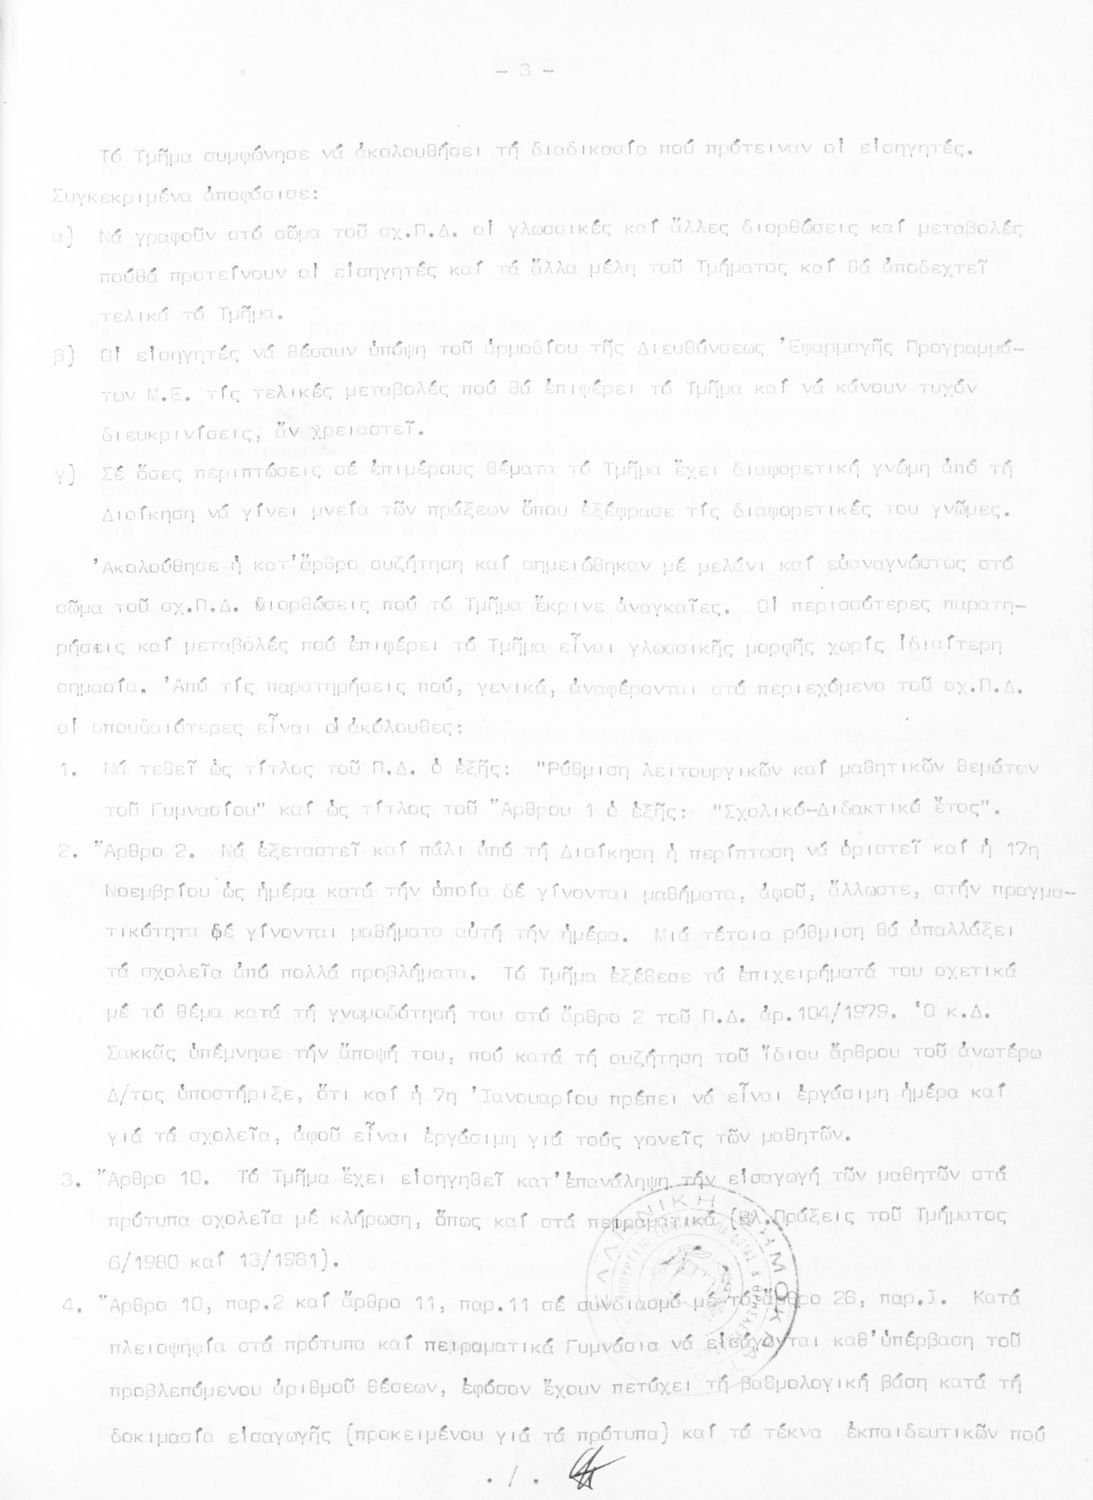 - 3 -
Τό Τμῆμα συμφώνησε νά ἀκολουθήσει τή διαδικασία πού πρότειναν οἱ εἰσηγητές.
Συγκεκριμένα ἀποφάσισε:
α) Νά γραφοῦν στό σῶμα τοῦ σχ.Π.Δ. οἱ γλωσσικές καί ἄλλες διορθώσεις καί μεταβολές
πούθά προτείνουν οἱ εἰσηγητές καί τά ἄλλα μέλη τοῦ Τμήματος καί θά ἀποδεχτεῖ
τελικά τό Τμῆμα.
β) Οἱ εἰσηγητές νά θέσουν ὑπόψη τοῦ ἁρμοδίου τῆς Διευθύνσεως Ἐφαρμογῆς Προγραμμά-
των Μ.Ε. τίς τελικές μεταβολές πού θά ἐπιφέρει τό Τμῆμα καί νά κάνουν τυχόν
διευκρινίσεις, ἄν χρειαστεῖ.
γ) Σέ ὅσες περιπτώσεις σέ ἐπιμέρους θέματα τό Τμῆμα ἔχει διαφορετική γνώμη ἀπό τή
Διοίκηση νά γίνει μνεία τῶν πράξεων ὅπου ἐξέφρασε τίς διαφορετικές του γνῶμες.
Ἀκολούθησε ἡ κατ' ἄρθρο συζήτηση καί σημειώθηκαν μέ μελάνι καί εὐαναγνώστως στό
σῶμα τοῦ σχ.Π.Δ. διορθώσεις πού τό Τμῆμα ἔκρινε ἀναγκαῖες. Οἱ περισσότερες παρατη-
ρήσεις καί μεταβολές πού ἐπιφέρει τό Τμῆμα εἶναι γλωσσικῆς μορφῆς χωρίς ἰδιαίτερη
σημασία. Ἀπό τίς παρατηρήσεις πού, γενικά, ἀναφέρονται στό περιεχόμενο τοῦ σχ.Π.Δ.
οἱ σπουδαιότερες εἶναι οἱ ἀκόλουθες:
1. Νά τεθεῖ ὡς τίτλος τοῦ Π.Δ. ὁ ἑξῆς: "Ρύθμιση λειτουργικῶν καί μαθητικῶν θεμάτων
τοῦ Γυμνασίου" καί ὡς τίτλος τοῦ Ἄρθρου 1 ὁ ἑξῆς: "Σχολικό-Διδακτικό ἔτος".
2. Ἄρθρο 2. Νά ἐξεταστεῖ καί πάλι ἀπό τή Διοίκηση ἡ περίπτωση νά ὁριστεῖ καί ἡ 17η
Νοεμβρίου ὡς ἡμέρα κατά τήν ὁποία δέ γίνονται μαθήματα, ἀφοῦ, ἄλλωστε, στήν πραγμα-
τικότητα δέ γίνονται μαθήματα αὐτή τήν ἡμέρα. Μιά τέτοια ρύθμιση θά ἀπαλλάξει
τά σχολεῖα ἀπό πολλά προβλήματα. Τό Τμῆμα ἐξέθεσε τά ἐπιχειρήματά του σχετικά
μέ τό θέμα κατά τή γνωμοδότησή του στό ἄρθρο 2 τοῦ Π.Δ. ἀρ.104/1979. Ὁ κ.Δ.
Σακκᾶς ὑπέμνησε τήν ἄποψή του, πού κατά τή συζήτηση τοῦ ἴδιου ἄρθρου τοῦ ἀνωτέρω
Δ/τος ὑποστήριξε, ὅτι καί ἡ 7η Ἰανουαρίου πρέπει νά εἶναι ἐργάσιμη ἡμέρα καί
γιά τά σχολεῖα, ἀφοῦ εἶναι ἐργάσιμη γιά τούς γονεῖς τῶν μαθητῶν.
3. Ἄρθρο 10. Τό Τμῆμα ἔχει εἰσηγηθεῖ κατ' ἐπανάληψη τήν εἰσαγωγή τῶν μαθητῶν στά
πρότυπα σχολεῖα μέ κλήρωση, ὅπως καί στά πειραματικά (βλ.Πράξεις τοῦ Τμήματος
6/1980 καί 13/1981).
4. Ἄρθρο 10, παρ.2 καί ἄρθρο 11, παρ.11 σέ συνδιασμό μέ τό ἄρθρο 28, παρ.Ι. Κατά
πλειοψηφία στά πρότυπα καί πειραματικά Γυμνάσια νά εἰσάγωνται καθ' ὑπέρβαση τοῦ
προβλεπόμενου ἀριθμοῦ θέσεων, ἐφόσον ἔχουν πετύχει τή βαθμολογική βάση κατά τή
δοκιμασία εἰσαγωγῆς (προκειμένου γιά τά πρότυπα) καί τά τέκνα ἐκπαιδευτικῶν πού
. / .